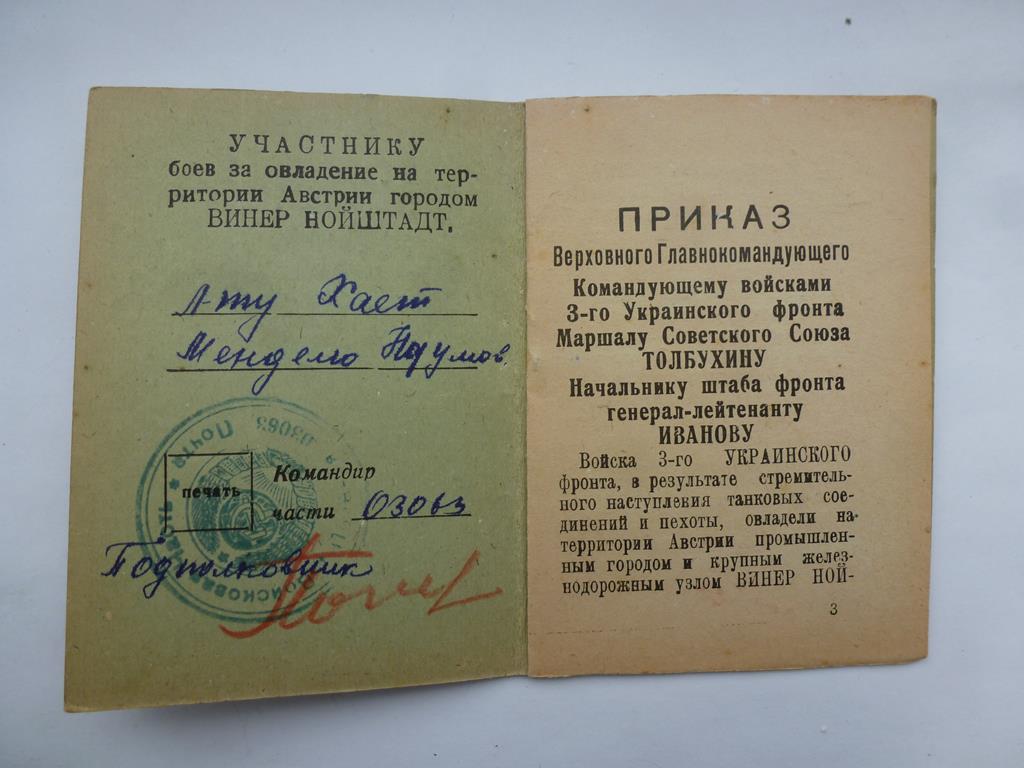 УЧАСТНИКУ
боев за овладение на тер-
ритории Австрии городом
ВИНЕР НОЙШТАДТ.
Л-ту Хает
Менделю Наумов
03063
Полевая Почта
печать
Командир
части 03063
Подполковник
ПРИКАЗ
Верховного Главнокомандующего
Командующему войсками
3-го Украинского фронта
Маршалу Советского Союза
ТОЛБУХИНУ
Начальнику штаба фронта
генерал-лейтенанту
ИВАНОВУ
Войска 3-го УКРАИНСКОГО
фронта, в результате стремитель-
ного наступления танковых сое-
динений и пехоты, овладели на
территории Австрии промышлен-
ным городом и крупным желез-
нодорожным узлом ВИНЕР НОЙ-
3